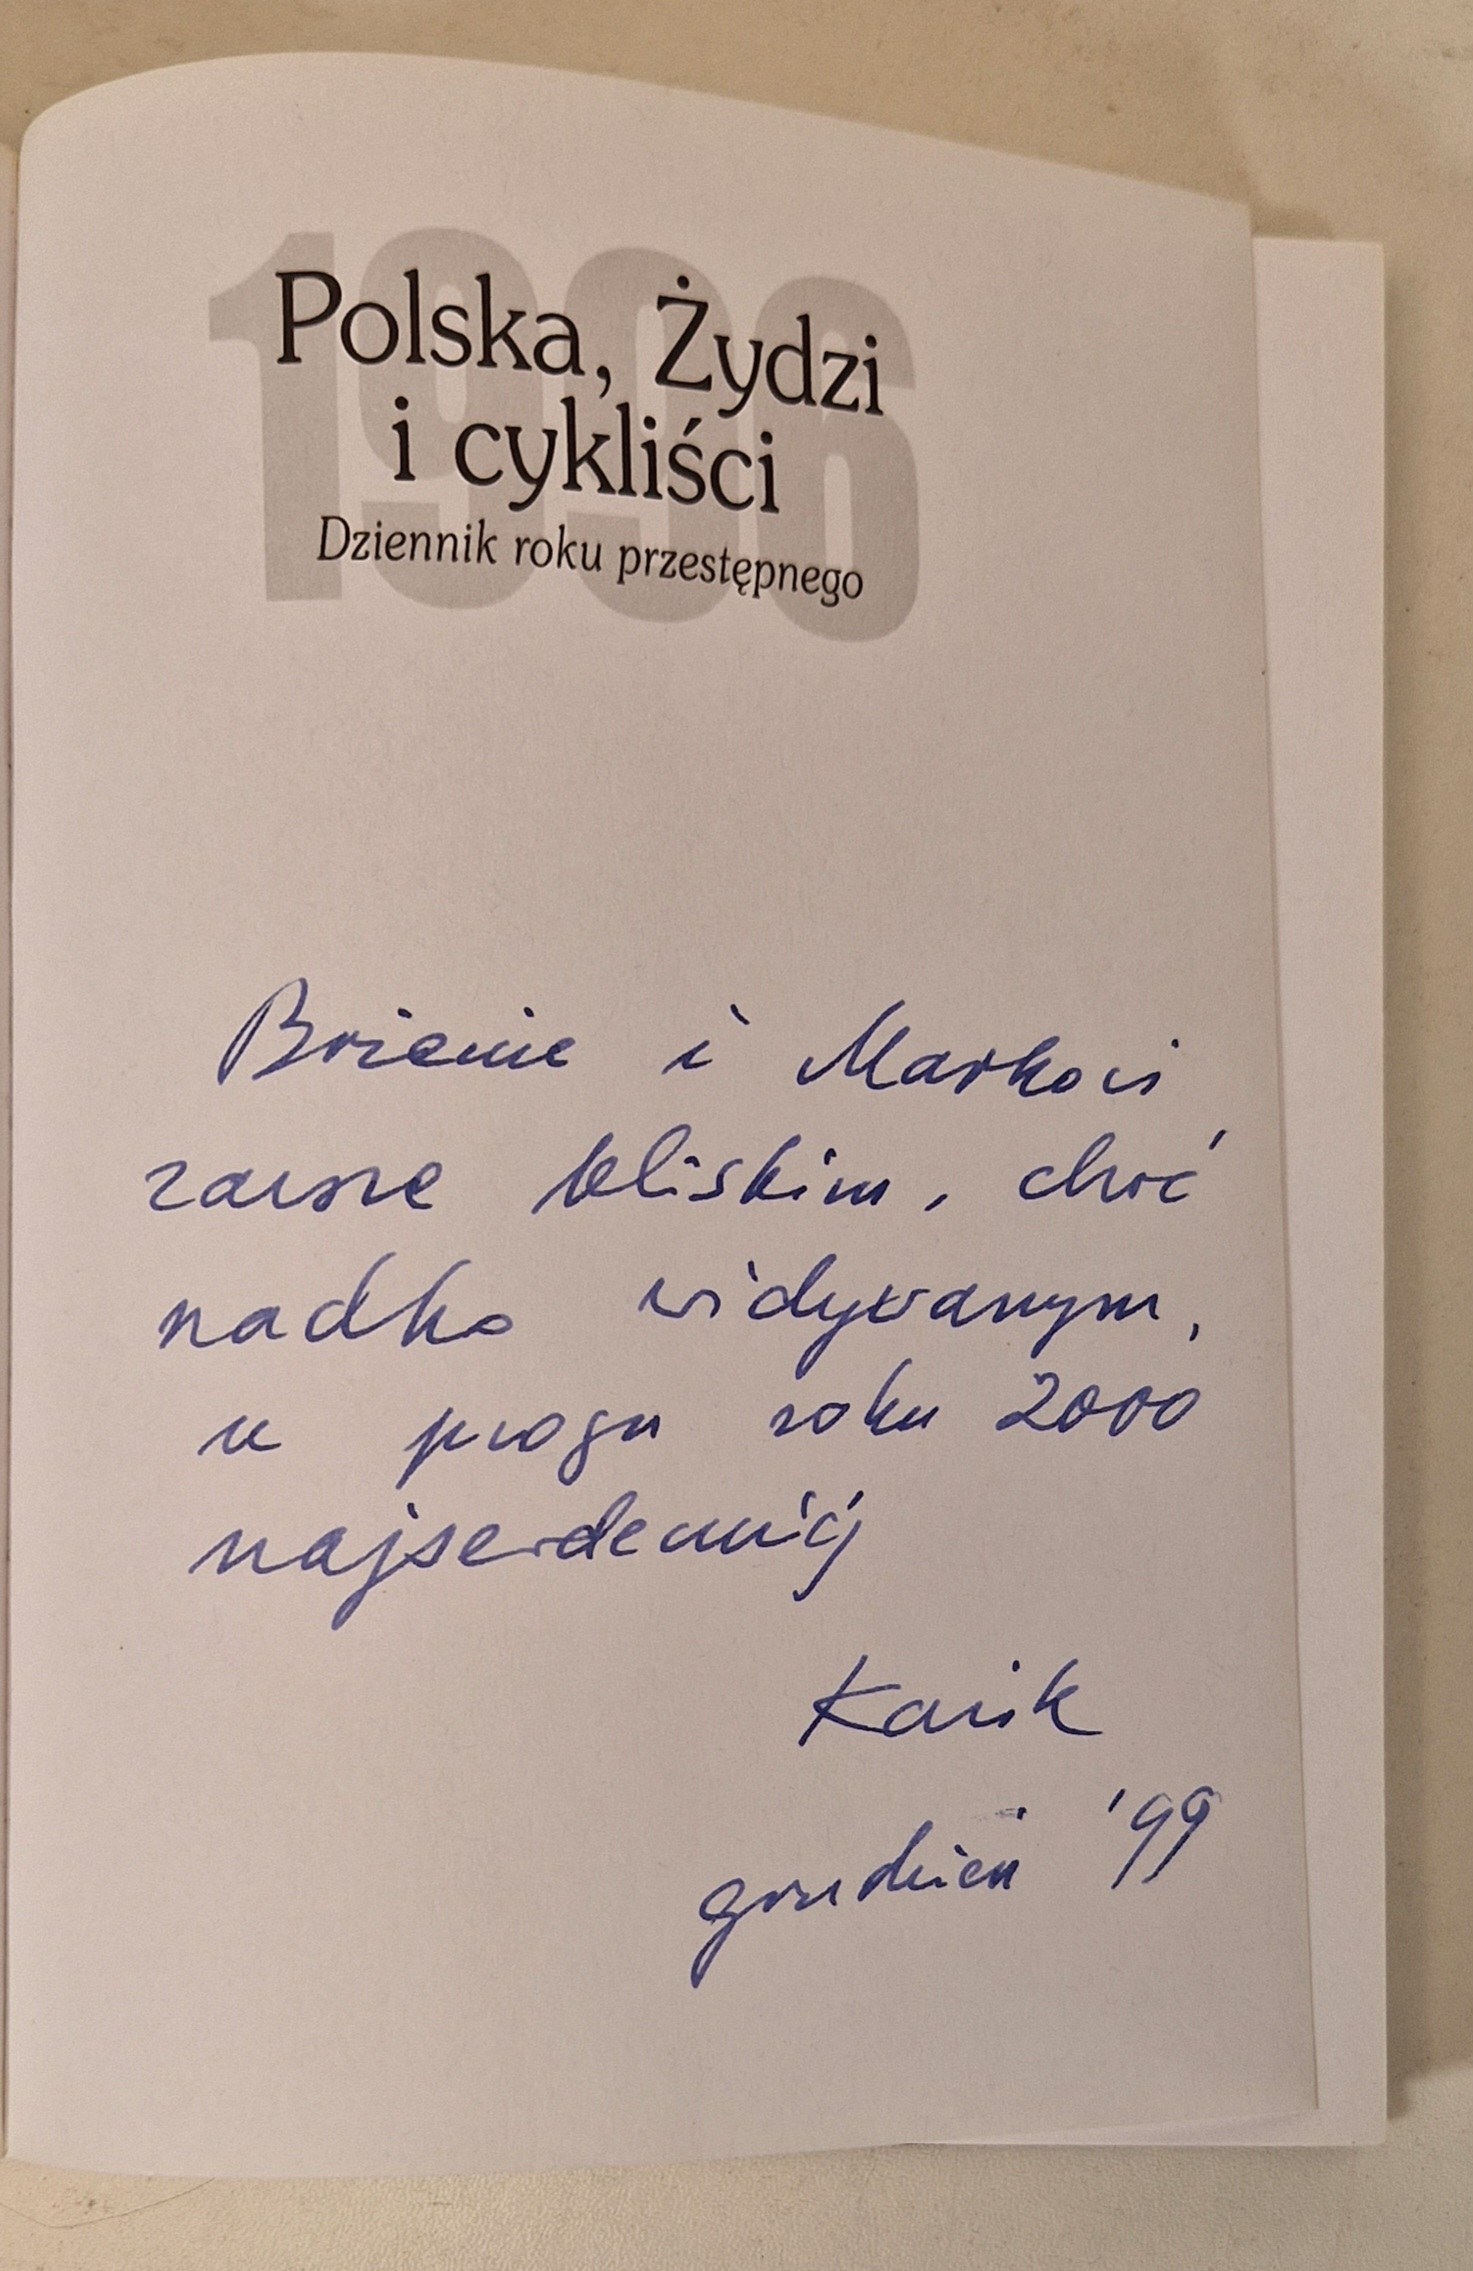 1996
Polska, Żydzi
i cykliści
Dziennik roku przestępnego
Bożenie i Markowi
zawsze bliskim, choć
rzadko widywanym,
u progu roku 2000
najserdeczniej
Kazik
grudzień '99